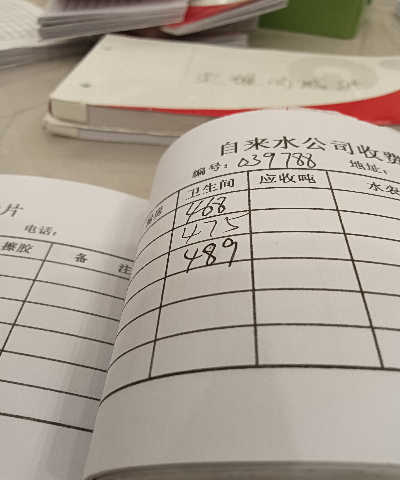 自来水公司收费
编号: 039788 地址:
卫生间 应收吨 水
468
475
489
片
电话:
擦胶 备注